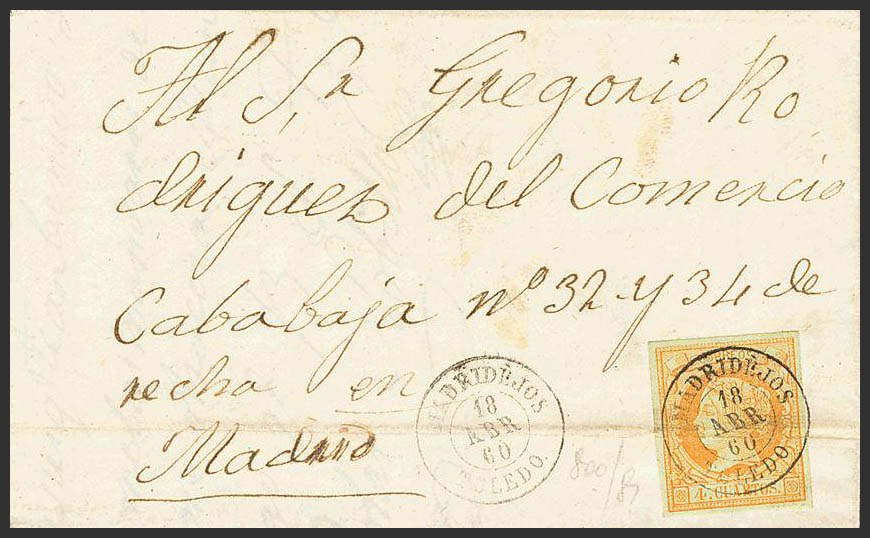 Al Sr Gregorio Ro
driguez del Comercio
Cababaja nº 32 y 34 de
recha en
Madrid
MADRIDEJOS
18
ABR
60
TOLEDO.
MADRIDEJOS
18
ABR
60
TOLEDO
4 CUARTOS.
800/